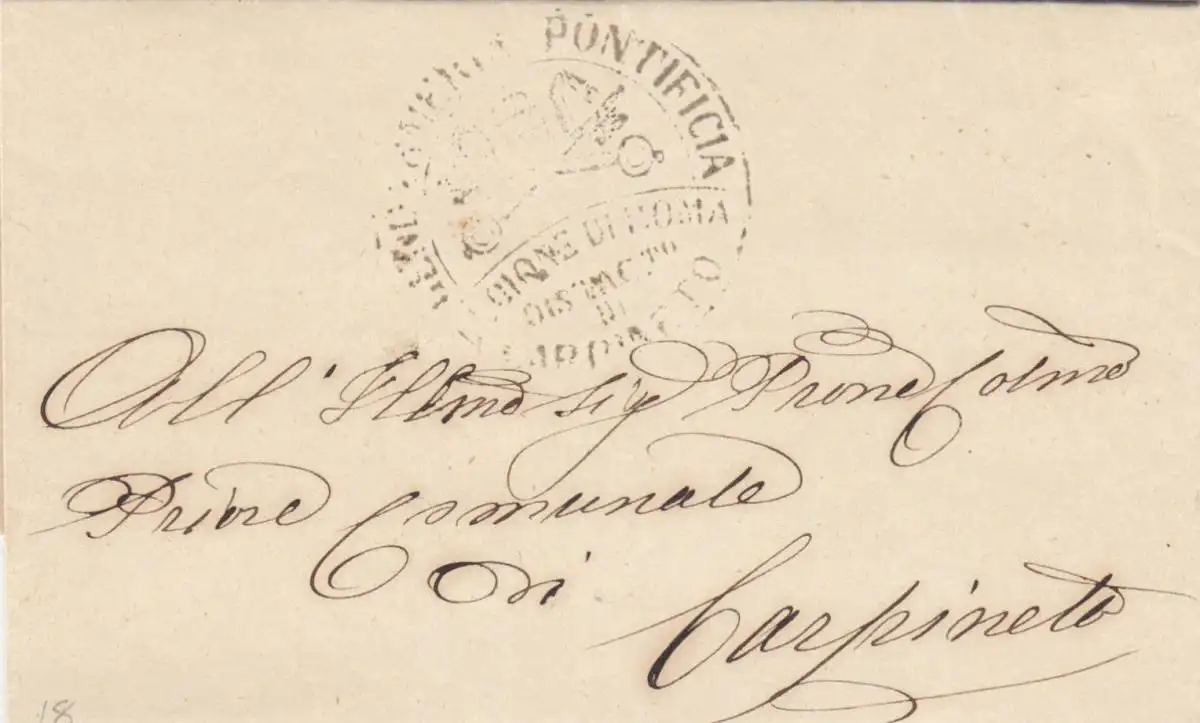 GENDARMERIA PONTIFICIA
LEGIONE DI ROMA
DISTRETTO
DI
CARPINETO
All' Illmo Sig Prone Colmo
Priore Comunale
Di
Carpineto
18